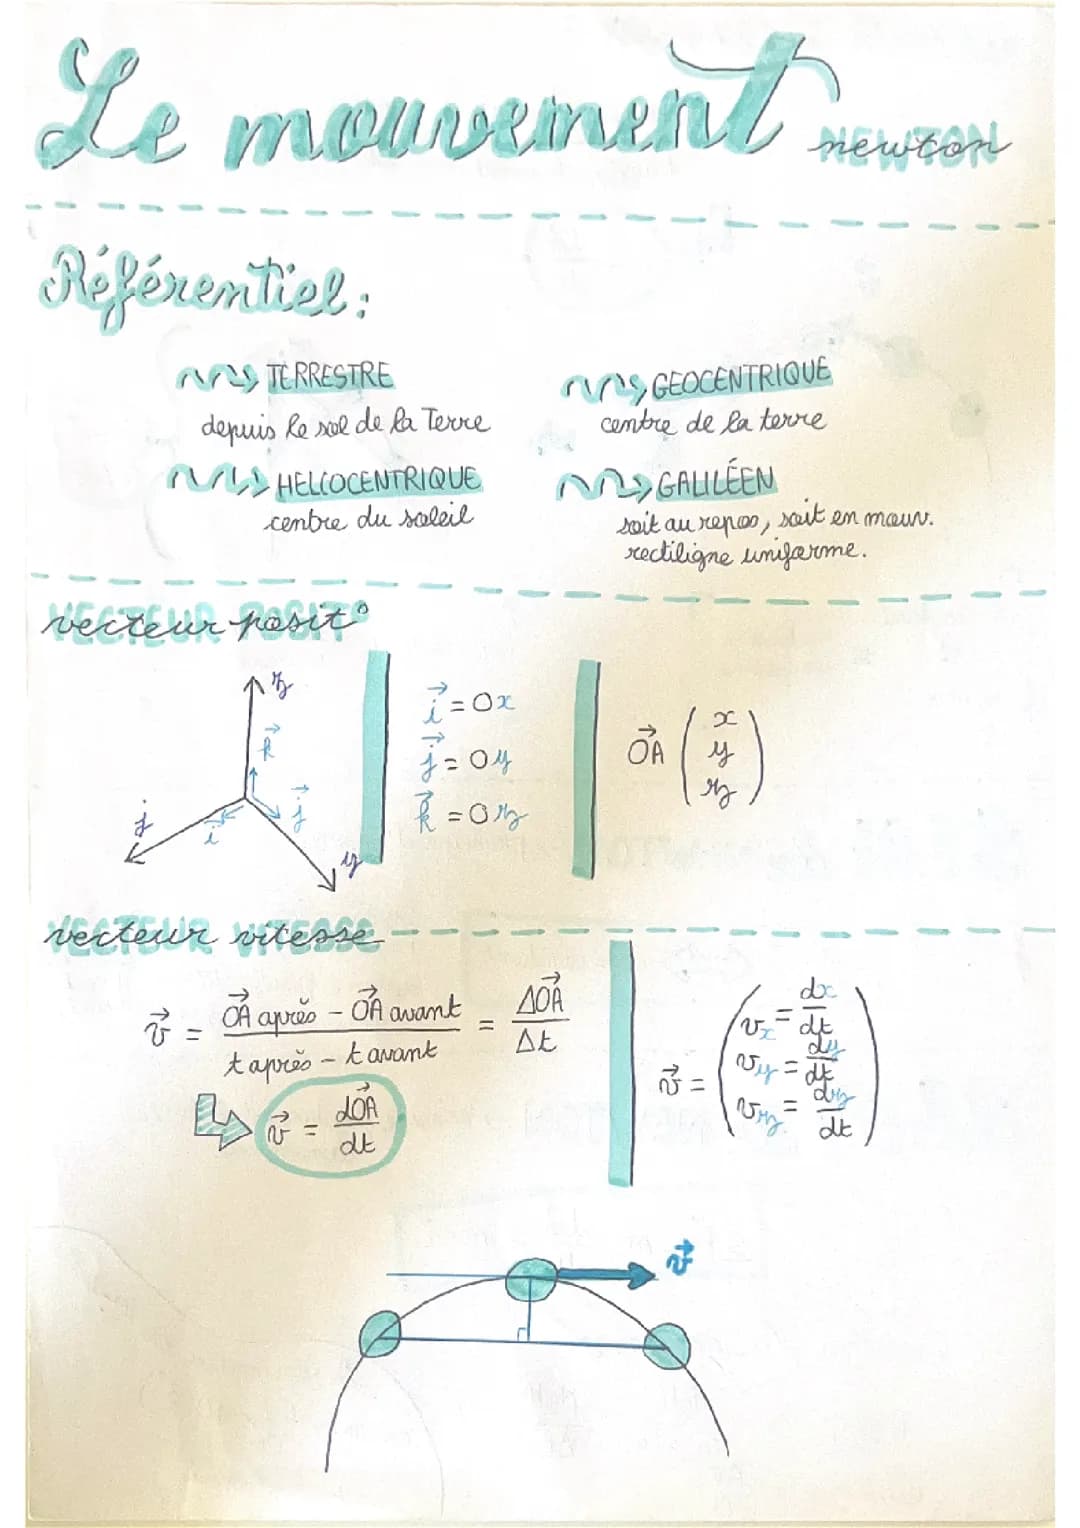 Le mouvement
NEWTON
newton
Référentiel :
TERRESTRE
depuis le sol de la Terre
GEOCENTRIQUE
centre de la terre
HELIOCENTRIQUE
centre du soleil
GALILÉEN
soit au repos, soit en mouv.
rectiligne uniforme.
VECTEUR POSIT°
vecteur posit°
z
k⃗
j
i⃗
j⃗
y
i⃗ = Ox
j⃗ = Oy
k⃗ = Oz
OA⃗ ( x
y
z )
VECTEUR VITESSE
vecteur vitesse
v⃗ = (OA⃗ après - OA⃗ avant) / (t après - t avant) = ΔOA⃗ / Δt
v⃗ = dOA⃗ / dt
v⃗ = ( vx = dx/dt
vy = dy/dt
vz = dz/dt )
v⃗